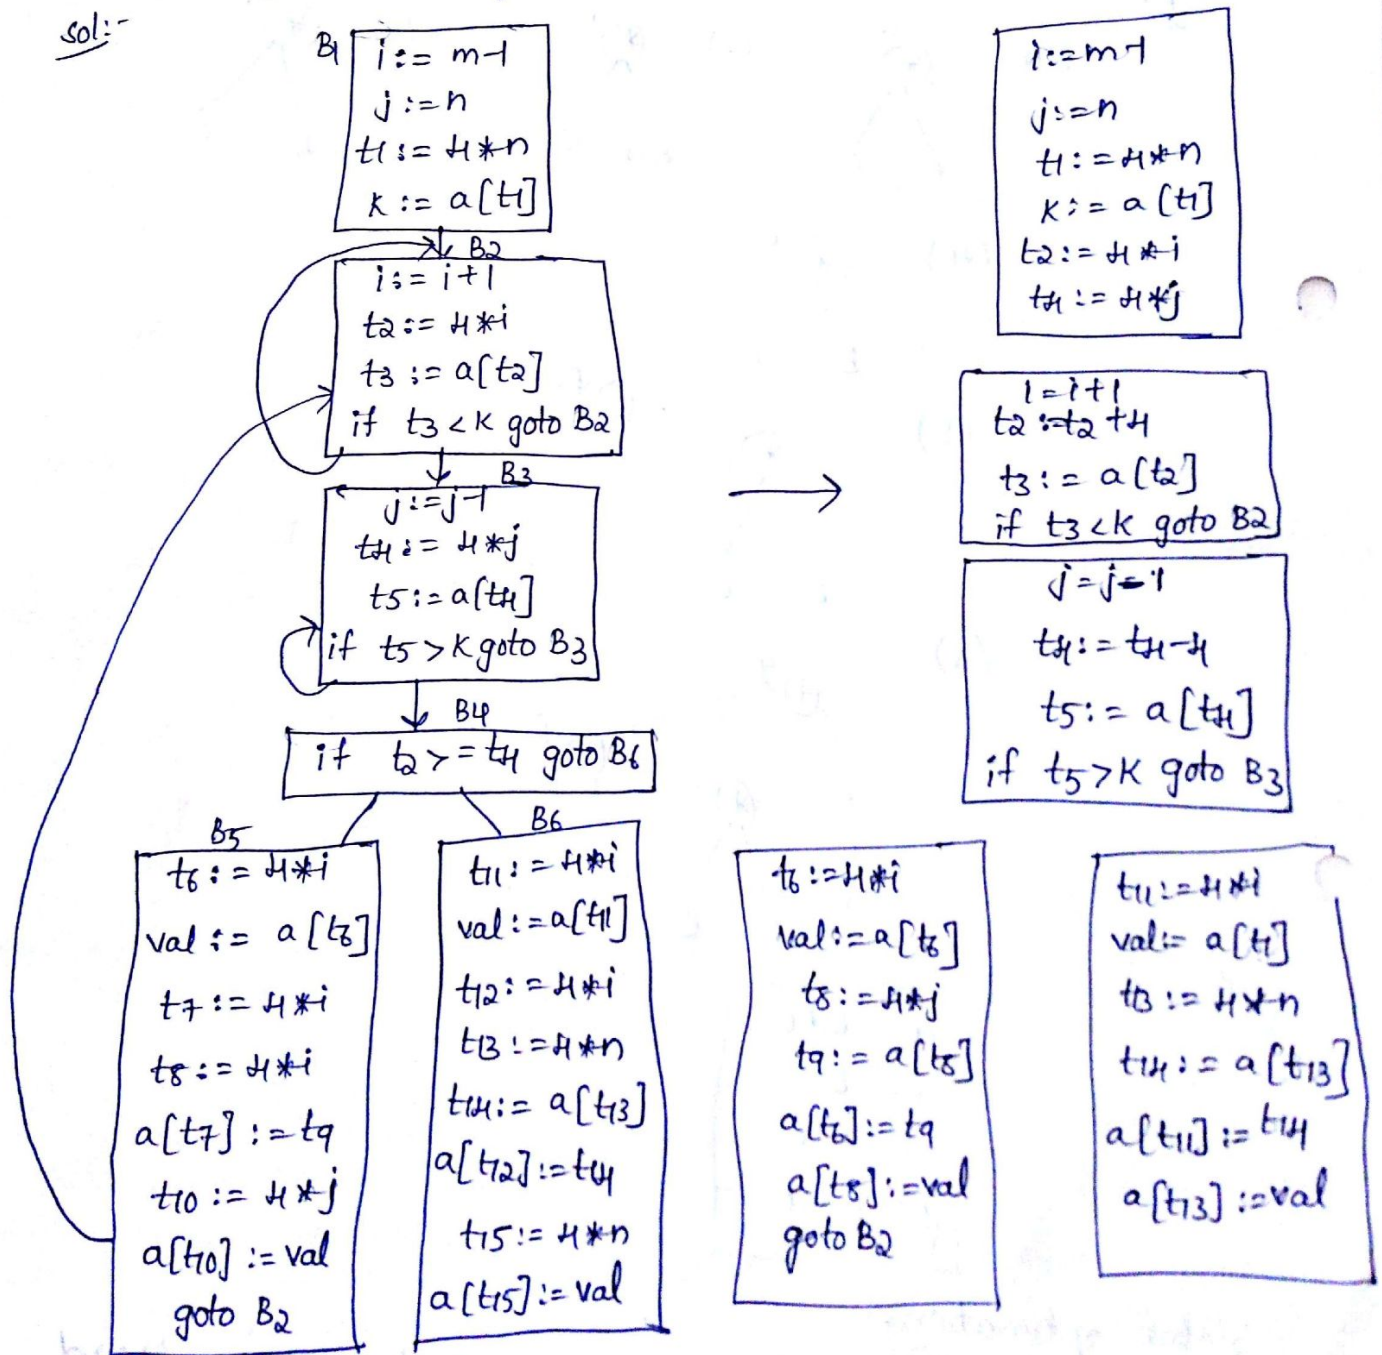 sol:-
B1
i := m-1
j := n
t1 := 4*n
k := a[t1]
B2
i := i+1
t2 := 4*i
t3 := a[t2]
if t3 < k goto B2
B3
j := j-1
t4 := 4*j
t5 := a[t4]
if t5 > k goto B3
B4
if t2 >= t4 goto B6
B5
t6 := 4*i
val := a[t6]
t7 := 4*i
t8 := 4*i
a[t7] := t9
t10 := 4*j
a[t10] := val
goto B2
B6
t11 := 4*i
val := a[t11]
t12 := 4*i
t13 := 4*n
t14 := a[t13]
a[t12] := t14
t15 := 4*n
a[t15] := val
i := m-1
j := n
t1 := 4*n
k := a[t1]
t2 := 4*i
t4 := 4*j
i = i+1
t2 := t2+4
t3 := a[t2]
if t3 < k goto B2
j = j-1
t4 := t4-4
t5 := a[t4]
if t5 > k goto B3
t6 := 4*i
val := a[t6]
t8 := 4*j
t9 := a[t8]
a[t6] := t9
a[t8] := val
goto B2
t11 := 4*i
val := a[t1]
t13 := 4*n
t14 := a[t13]
a[t11] := t14
a[t13] := val